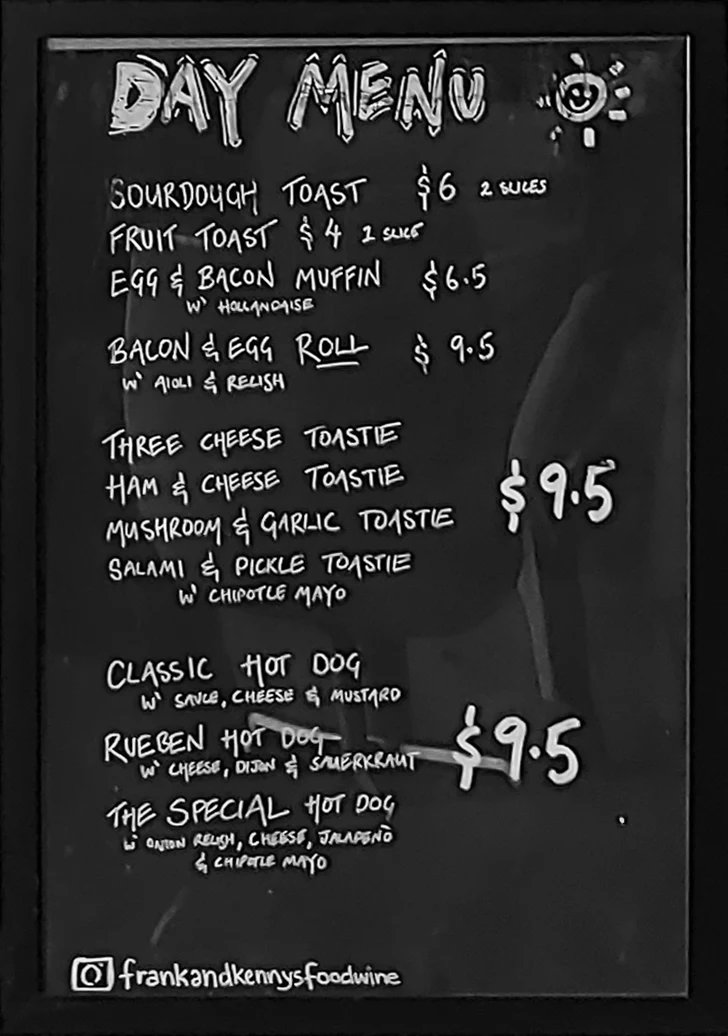 DAY MENU
SOURDOUGH TOAST $6 2 SLICES
FRUIT TOAST $4 1 SLICE
EGG & BACON MUFFIN $6.5
W' HOLLANDAISE
BACON & EGG ROLL $9.5
W' AIOLI & RELISH
THREE CHEESE TOASTIE
HAM & CHEESE TOASTIE
$9.5
MUSHROOM & GARLIC TOASTIE
SALAMI & PICKLE TOASTIE
W' CHIPOTLE MAYO
CLASSIC HOT DOG
W' SAUCE, CHEESE & MUSTARD
RUEBEN HOT DOG
$9.5
W' CHEESE, DIJON & SAUERKRAUT
THE SPECIAL HOT DOG
W' ONION RELISH, CHEESE, JALAPEÑO
& CHIPOTLE MAYO
frankandkennysfoodwine